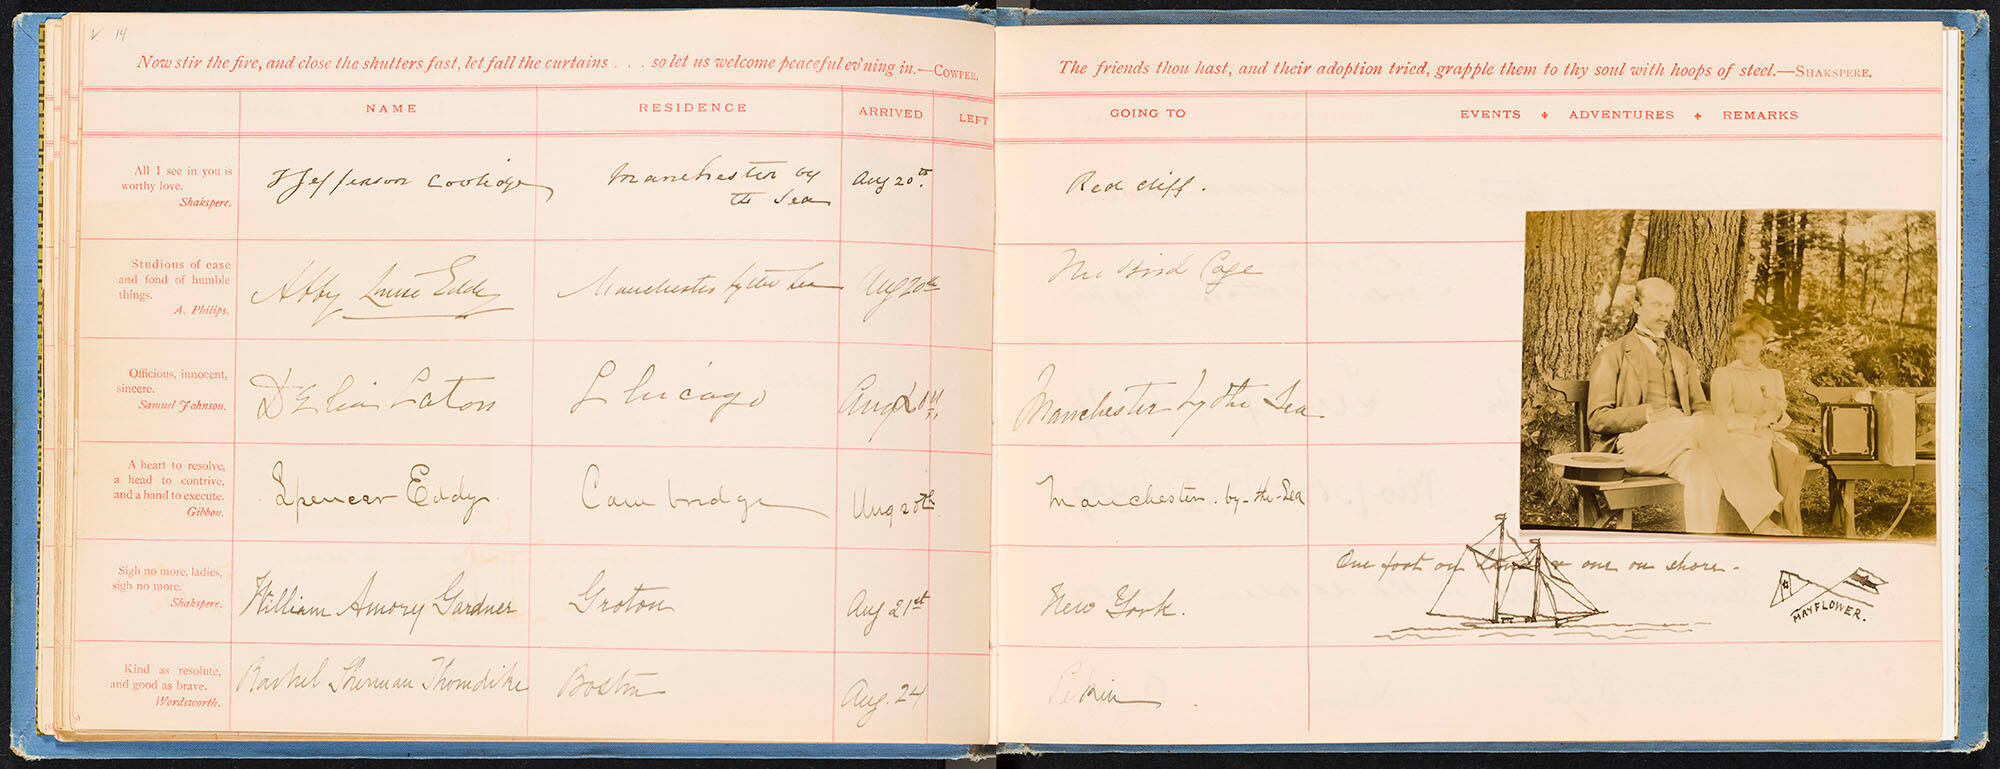 14
Now stir the fire, and close the shutters fast, let fall the curtains . . . so let us welcome peaceful ev'ning in.—COWPER.
NAME RESIDENCE ARRIVED LEFT
All I see in you is
worthy love.
Shakspere.
T Jefferson Coolidge Manchester by
the Sea Aug 20th.
Studious of ease
and fond of humble
things.
A. Philips.
Abby Louise Eddy Manchester by the Sea Aug 20th
Officious, innocent,
sincere.
Samuel Johnson.
Delia Caton Chicago Aug 20th
A heart to resolve,
a head to contrive,
and a hand to execute.
Gibbon.
Spencer Eddy. Cambridge Aug 20th
Sigh no more, ladies,
sigh no more.
Shakspere.
William Amory Gardner Groton Aug 21st
Kind as resolute,
and good as brave.
Wordsworth.
Rachel Sherman Thorndike Boston Aug. 24
The friends thou hast, and their adoption tried, grapple them to thy soul with hoops of steel.—SHAKSPERE.
GOING TO EVENTS ADVENTURES REMARKS
Red cliff.
The Bird Cage
Manchester by the Sea
Manchester-by-the-Sea
One foot on one on shore-
New York.
MAYFLOWER.
Pekin